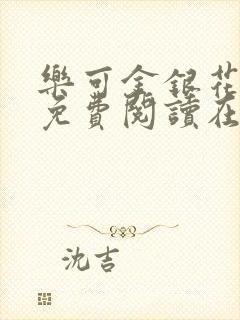 樂可金銀花
免費閱讀在
沈吉